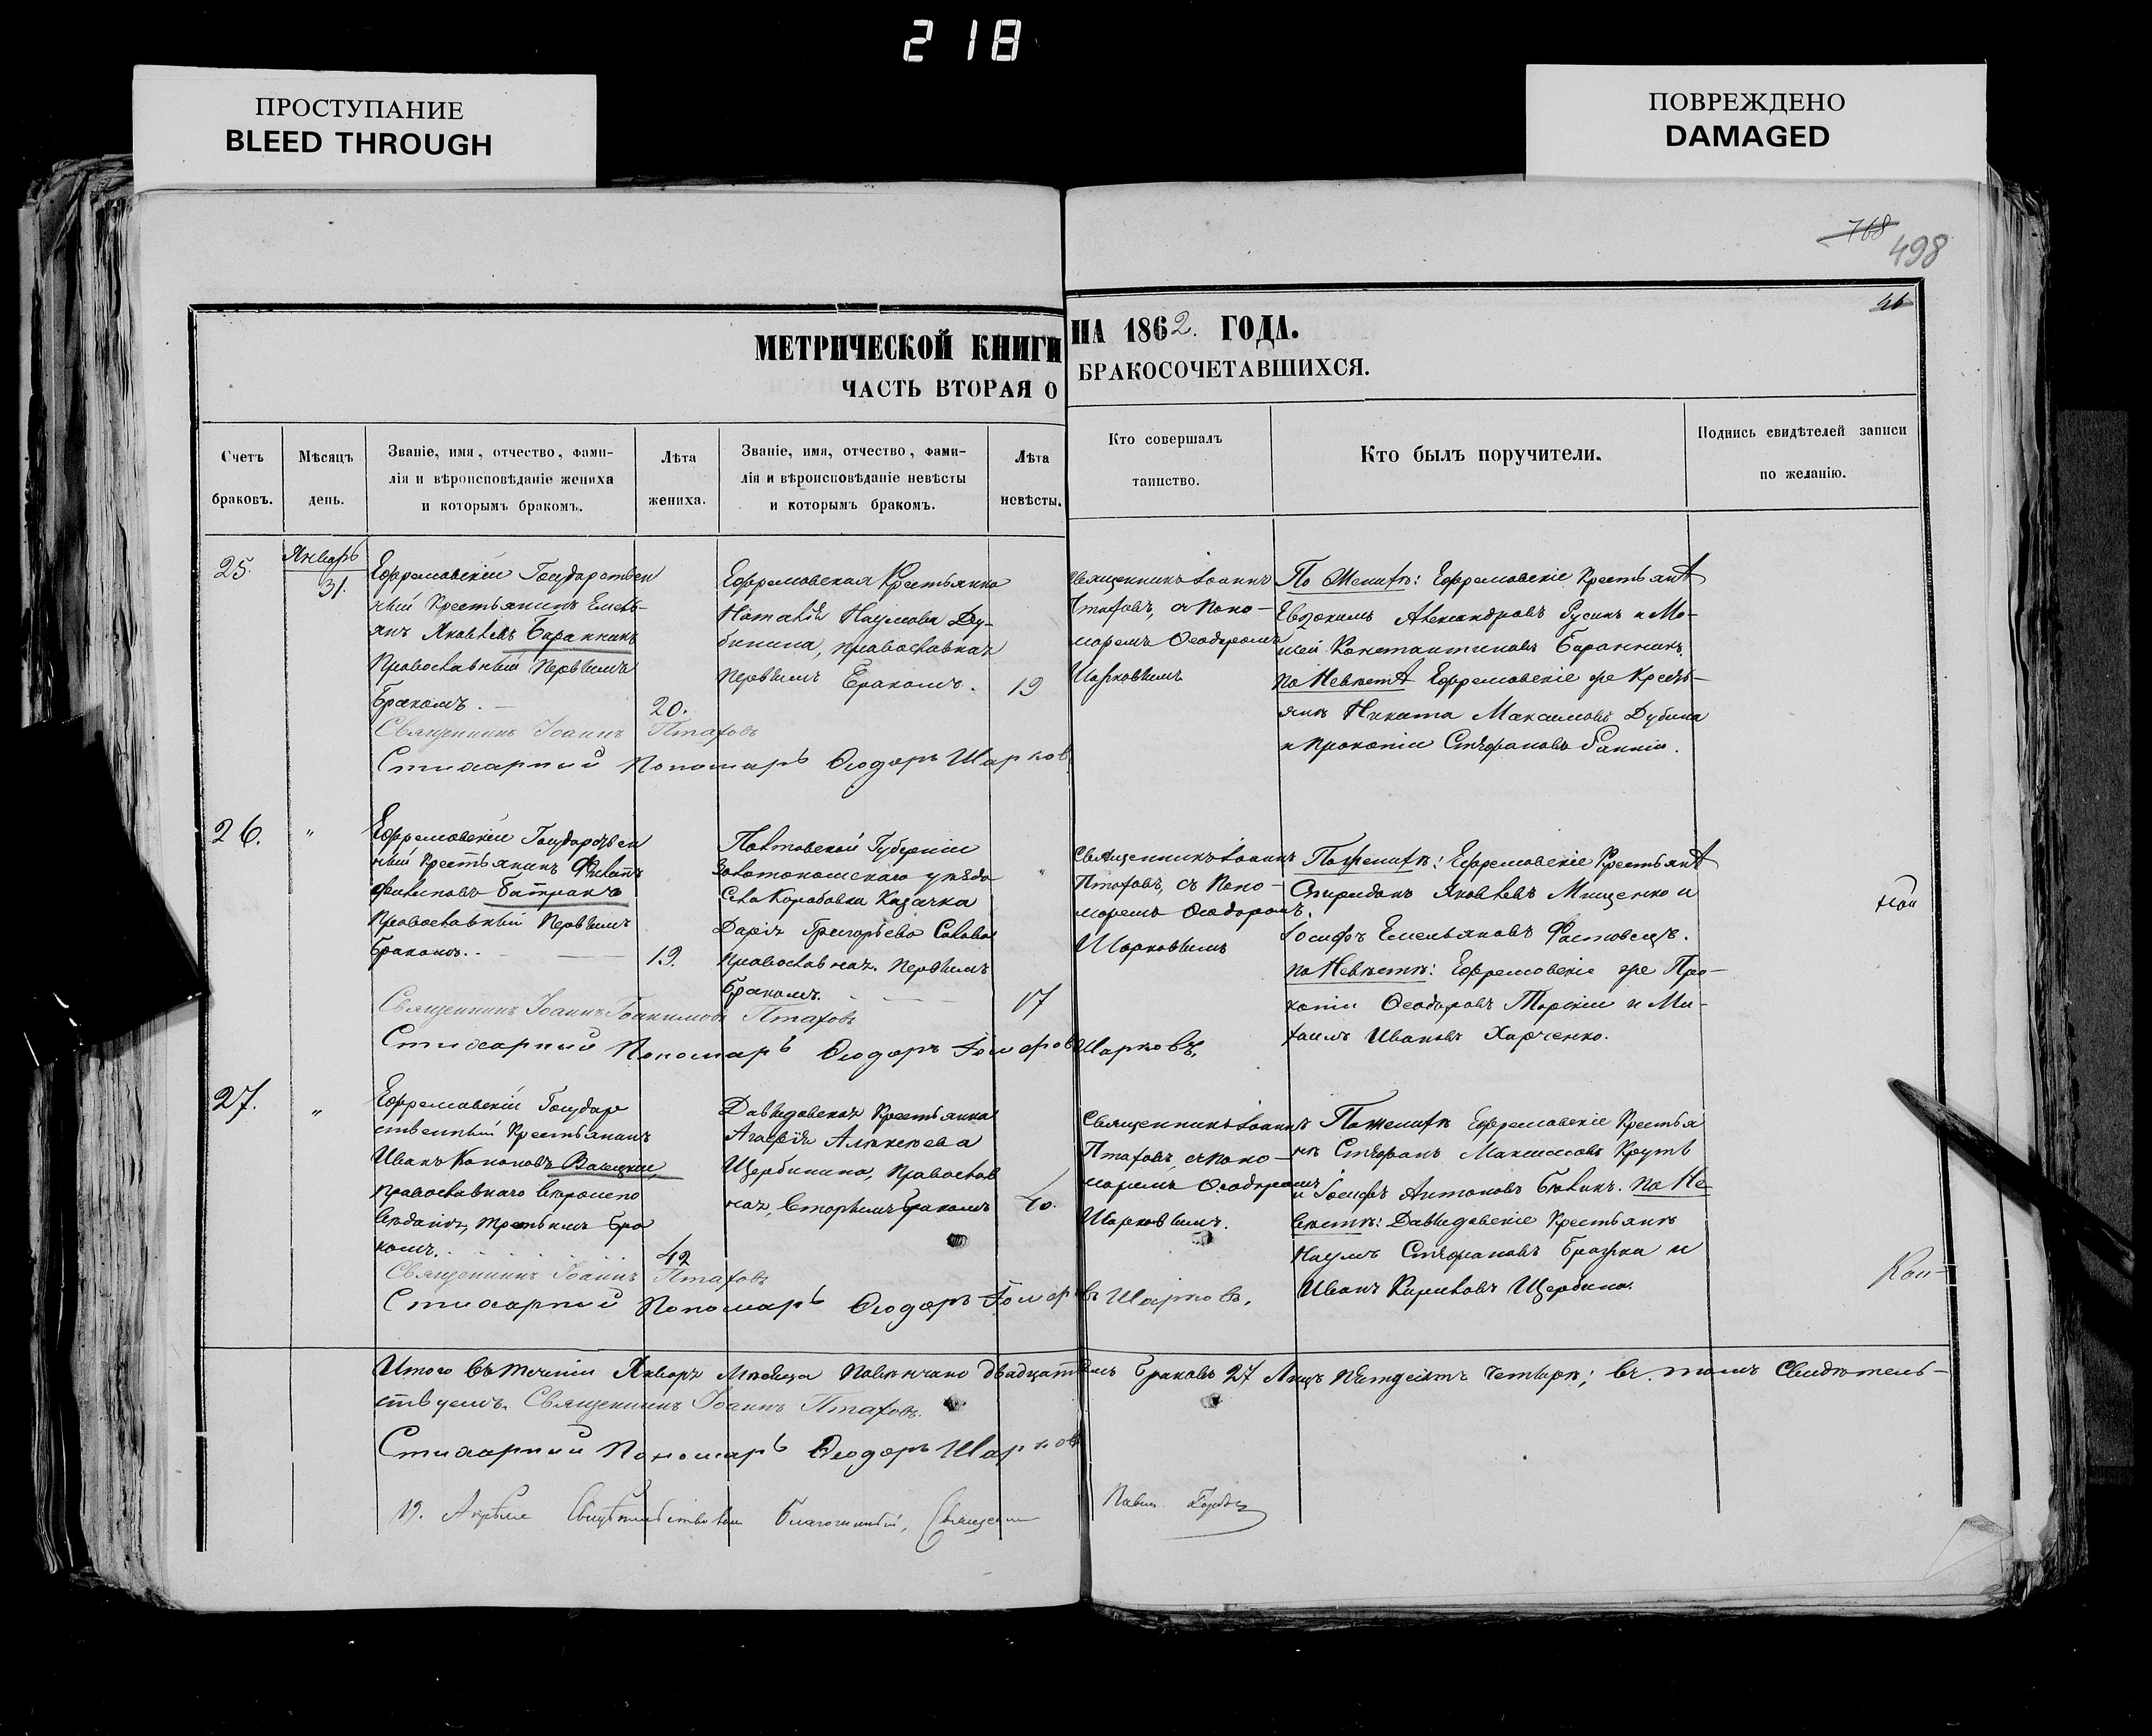 218
ПРОСТУПАНИЕ
BLEED THROUGH
ПОВРЕЖДЕНО
DAMAGED
768
498
МЕТРИЧЕСКОЙ КНИГИ НА 1862. ГОДА.
ЧАСТЬ ВТОРАЯ О БРАКОСОЧЕТАВШИХСЯ.
Счетъ
браковъ.
Мѣсяцъ
день.
Званіе, имя, отчество, фами-
лія и вѣроисповѣданіе жениха
и которымъ бракомъ.
Лѣта
жениха.
Званіе, имя, отчество, фами-
лія и вѣроисповѣданіе невѣсты
и которымъ бракомъ.
Лѣта
невѣсты.
Кто совершалъ
таинство.
Кто былъ поручители.
Подпись свидѣтелей записи
по желанію.
25.
Январь
31.
Ефремовскій Государствен
ный Крестьянинъ Емель-
янъ Яковлевъ Баранникъ
Православный первымъ
бракомъ.
20.
Ефремовская Крестьянка
Наталія Наумова Ду-
бинина, православная
первымъ бракомъ.
19
Священникъ Іоаннъ
Птаховъ, съ поно-
маремъ Ѳеодоромъ
Шарковымъ
По Женихѣ: Ефремовскіе Крестьянѣ
Евдокимъ Александровъ Русинъ и Мо-
исей Константиновъ Баранникъ.
по Невѣстѣ Ефремовскіе же Кресть-
янѣ Никита Максимовъ Дубина
и Прокопій Стефановъ
Священникъ Іоаннъ Птаховъ
Стихарный Пономарь Ѳеодоръ Шарковъ
26.
"
Ефремовскій Государствен
ный Крестьянинъ Филипъ
Филиповъ Батракъ
Православный Первымъ
бракомъ.
19.
Полтавской Губерніи
Золотоношскаго уѣзда
Села Коробовки Казачка
Дарія Григорьева
Православная. Первымъ
бракомъ.
17
Священникъ Іоаннъ
Птаховъ, съ Поно-
маремъ Ѳеодоромъ
Шарковымъ
По женихѣ: Ефремовскіе Крестьянѣ
Спиридонъ Яковлевъ Мищенко и
Іосифъ Емельяновъ Фастовецъ.
по Невѣстѣ: Ефремовскіе же Про-
копій Ѳеодоровъ Торскій и Ми-
хаилъ Ивановъ Харченко.
Священникъ Іоаннъ Іоакимовъ Птаховъ
Стихарный Пономарь Ѳеодоръ Шарковъ.
27.
"
Ефремовскій Государ
ственный Крестьянинъ
Иванъ Кононовъ
православнаго вѣроиспо
вѣданія, третьимъ бра
комъ.
42
Давыдовская Крестьянка
Агафія Алексѣева
Щербинина, Православ
ная, вторымъ бракомъ
40.
Священникъ Іоаннъ
Птаховъ, съ поно-
маремъ Ѳеодоромъ
Шарковымъ.
По женихѣ Ефремовскіе Крестья
нѣ Стефанъ Максимовъ Круть
и Іосифъ Антоновъ Бѣликъ. по Не
вѣстѣ: Давыдовскіе Крестьянѣ
Наумъ Стефановъ Бражка и
Иванъ Кириловъ Щербина.
Священникъ Іоаннъ Птаховъ
Стихарный Пономарь Ѳеодоръ Шарковъ.
Итого въ теченіи Января Мѣсяца повѣнчано двадцать семь браковъ 27 Лицъ пятдесятъ четыре; въ томъ свидѣтель-
ствуемъ. Священникъ Іоаннъ Птаховъ.
Стихарный Пономарь Ѳеодоръ Шарковъ
19. Апрѣля Свидѣтельствовалъ Благочинный, Священникъ Павелъ